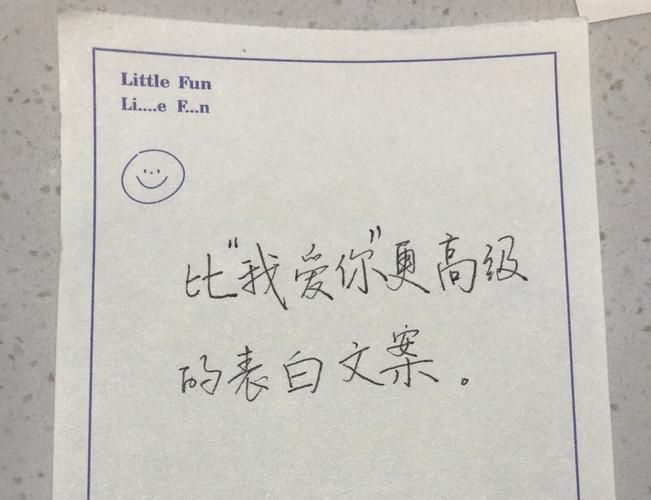 Little Fun
Li....e F...n
比“我爱你”更高级
的表白文案。